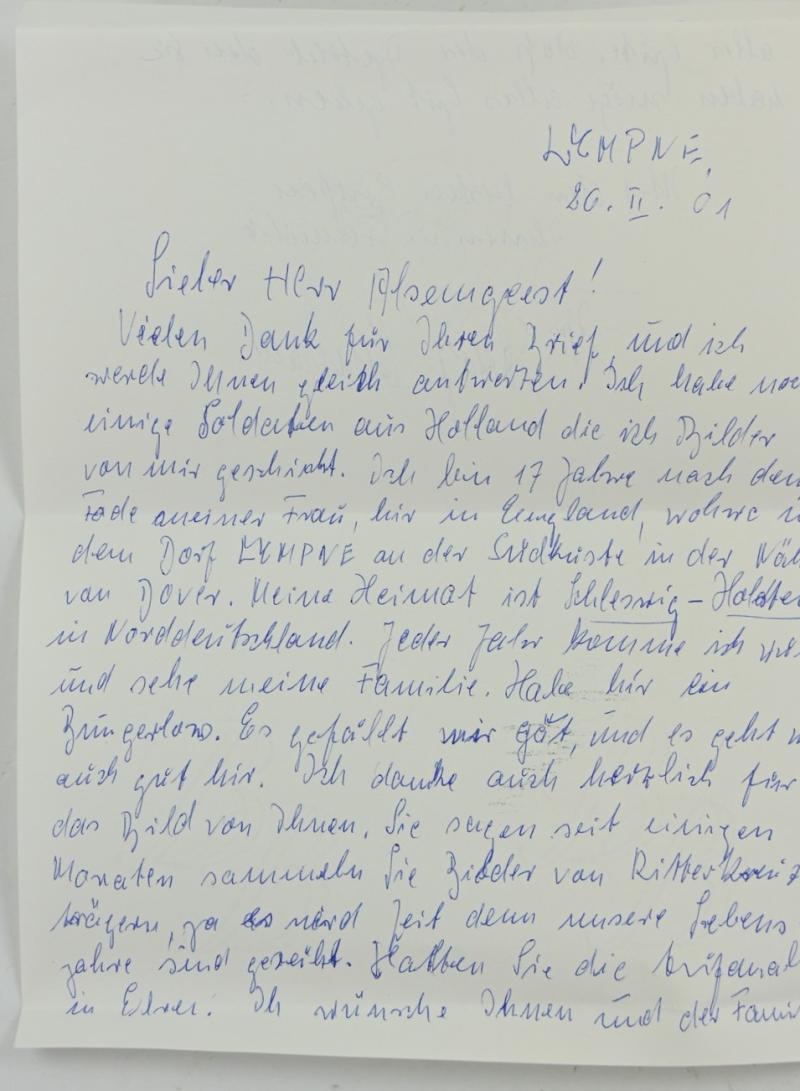 LYMPNE,
20. II. 01
Lieber Herr Alsemgeest!
Vielen Dank für Ihren Brief, und ich
werde Ihnen gleich antworten. Ich habe noc
einige Soldaten aus Holland die ich Bilder
von mir geschickt. Ich bin 17 Jahre nach dem
Tode meiner Frau, hir in England, wohne i
dem Dorf LYMPNE an der Südküste in der Näh
von Dover. Meine Heimat ist Schleswig-Holstei
in Norddeutschland. Jeder Jahr komme ich
und sehe meine Familie. Habe hir ein
Bungerlow. Es gefällt mir gut, und es geht m
auch gut hir. Ich danke auch herzlich für
das Bild von Ihnen. Sie sagen seit einigen
Monaten sammeln Sie Bilder von Ritterkreuz
trägern, ja es wird Zeit denn unsere Lebens
jahre sind gezählt. Hatten Sie die
in Ehren. Ich wünsche Ihnen und der Famil